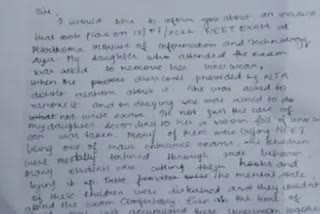 Sir,
I would like to inform you about an incident
that took place on 18/07/2022 NEET EXAM at
Marthoma Institute of Information and Technology
Ayur. My daughter who attended the exam
was asked to remove her innerwear.
When the dresscode provided by NTA
doesn't mention about it. She was asked to
remove it and on denying she was asked to
not write exam. Its not just the case of
my daughter according to her a room full of
can was taken. Many of them were crying NEET
being one of main entrance exams, the children
were mentally tortured through such behavior.
Many students were cutting their hooks and
tying it up The mental state
of these children were disturbed and they couldn't
attend the exam Comfortably. Even at the time of
together